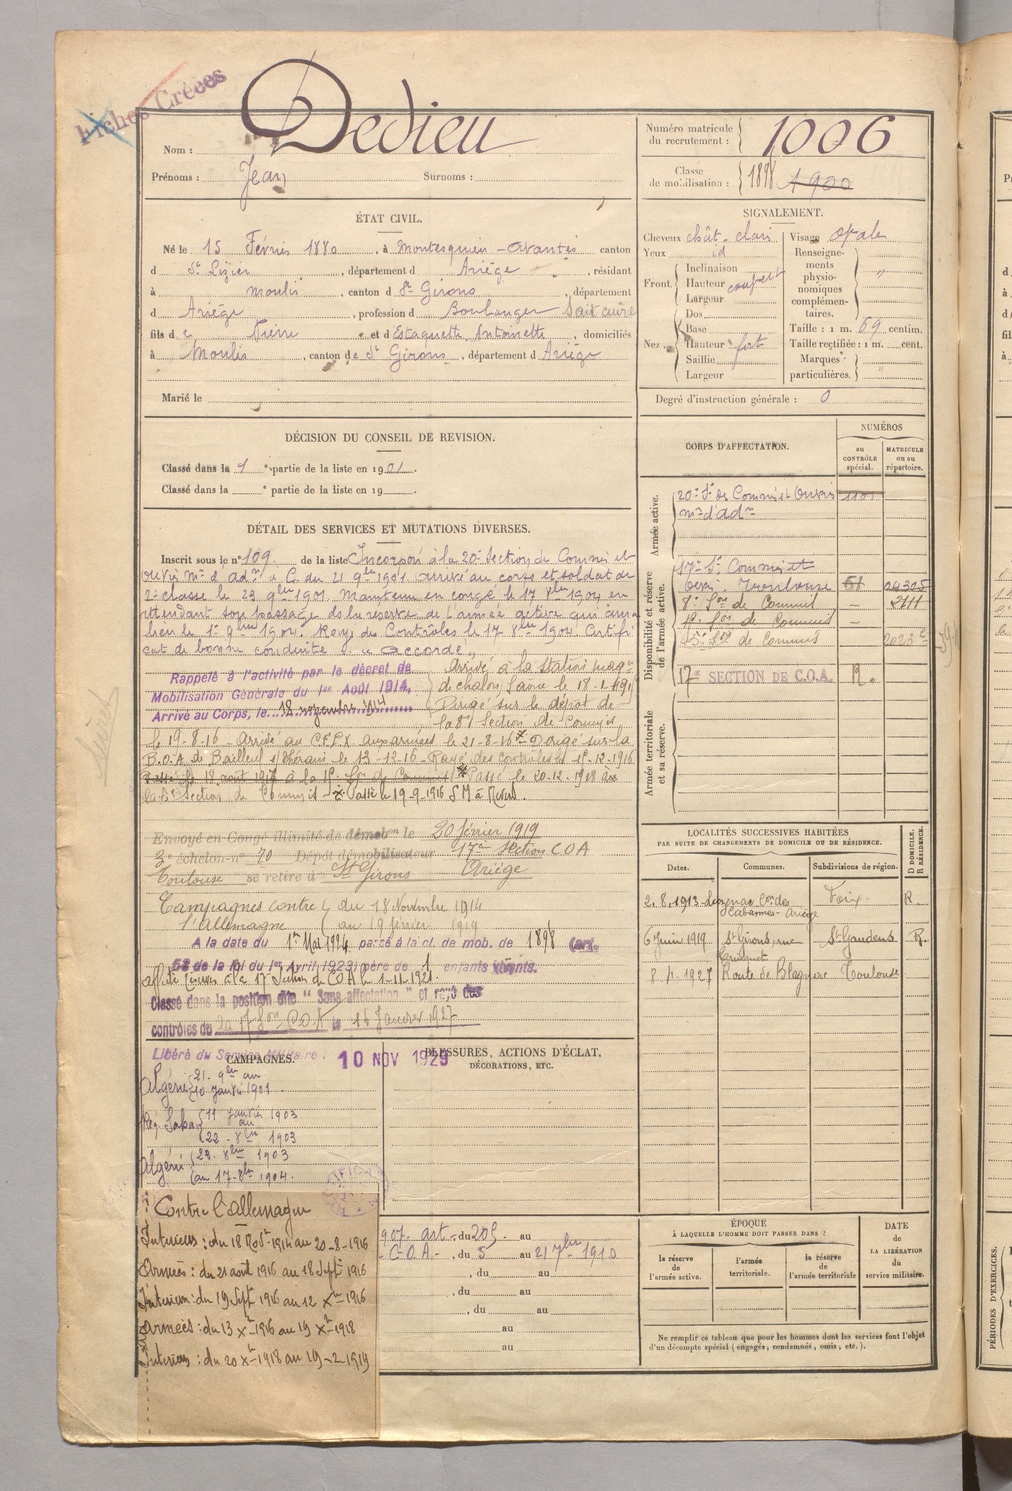 Fiches Créées
Nom : Dedieu
Prénoms : Jean Surnoms :
Numéro matricule du recrutement : 1006
Classe de mobilisation : 1898 1900
ÉTAT CIVIL.
Né le 15 Février 1880, à Montesquieu-Avantès canton
d St Lizier, département d Ariège, résidant
à Moulis, canton d St Girons, département
d Ariège, profession d Boulanger Sait cuire
fils de Pierre et d'Estaquette Antoinette, domiciliés
à Moulis, canton de St Girons, département d Ariège
Marié le
SIGNALEMENT.
Cheveux chât. clair
Yeux id
Front. Inclinaison
Hauteur couvert
Largeur
Nez. Dos
Base
Hauteur fort
Saillie
Largeur
Visage ovale
Renseignements physionomiques complémentaires. "
Taille : 1 m. 69 centim.
Taille rectifiée : 1 m. cent.
Marques particulières.
Degré d'instruction générale : 0
DÉCISION DU CONSEIL DE REVISION.
Classé dans la 1e partie de la liste en 1901.
Classé dans la e partie de la liste en 19 .
DÉTAIL DES SERVICES ET MUTATIONS DIVERSES.
Inscrit sous le n° 109. de la liste Incorporé à la 20e Section de Commis et
Ouvriers Mres d'adon à C. du 21 9bre 1901 arrivé au corps et soldat de
2e classe le 23 9bre 1901. Maintenu en congé le 17 8bre 1904 en
attendant son passage ds la réserve de l'armée active qui aura
lieu le 1er 9bre 1904. Rayé des Contrôles le 17 8bre 1904. Certifi
cat de bonne conduite "accordé".
Rappelé à l'activité par le décret de
Mobilisation Générale du 1er Août 1914.
Arrivé au Corps, le 18 novembre 1914
Arrivé à la station mag.
de chalon s/Saone le 18-1-191
Dirigé sur le dépôt de
la 8e Section de Commis
le 19-8-16 - Arrivé au aux armées le 21-8-16 Dirigé sur la
B.O.A. de Bailleul s/Thérain le 13-12-16 - Rayé des contrôles le 1er-12-1916
Passé le 18 août 1917 à la 1e Son de Commis Passé le 20-12-1918 à
la 5e Section de Commis Passé le 19-9-1916 S M à Nevers.
Envoyé en Congé illimité de démobon le 20 février 1919
3e échelon n° 70 Dépôt démobilisateur 17e section COA
Toulouse se retire à St Girons Ariège
Campagnes contre du 18 Novembre 1914
l'allemagne au 19 février 1919
A la date du 1er Mai 1924 passé à la cl. de mob. de 1898 (art.
58 de la loi du 1er Avril 1923) père de 1 enfants vivants.
affecté à la 17e Section de COA le 1-11-1921
Classé dans la position dite "Sans affectation" et rayé des
contrôles de la 17e Son C.O.A le 15 Janvier 1927
Libéré du Service Militaire : 10 NOV 1929
CORPS D'AFFECTATION.
NUMÉROS
au CONTRÔLE spécial.
MATRICULE ou au répertoire.
Armée active.
20e Son de Commis et Ouvriers 1101
mres d'adon
Disponibilité et réserve de l'armée active.
17e Son Commis et
Ouvri. Toulouse 51 04305
8e Son de Commis — 2111
1e Son de Commis —
5e Son de Commis 2023
17e SECTION DE C.O.A. R.
Armée territoriale et sa réserve.
LOCALITÉS SUCCESSIVES HABITÉES
PAR SUITE DE CHANGEMENTS DE DOMICILE OU DE RÉSIDENCE.
Dates. Communes. Subdivisions de région. D DOMICILE. R RÉSIDENCE.
2.8.1913 Luzenac Con des Cabannes-Ariège Foix. R.
6 Juin 1919 St Girons, rue St Gaudens R.
8.4.1927 Route de Blagnac Toulouse
CAMPAGNES.
Algérie 21. 9bre au
10 Janvier 1901
Rég. Saha 11 janvier 1903
au
22 - 8bre 1903
Algérie 23. 8bre 1903
au 17-8bre 1904.
BLESSURES, ACTIONS D'ÉCLAT, DÉCORATIONS, ETC.
Contre l'Allemagne
Intérieur : du 18 Nov. 1914 au 20-8-1916
Armées : du 21 août 1916 au 18 Sept 1916
Intérieur : du 19 Sept 1916 au 12 Xbre 1916
Armées : du 13 Xbre 1916 au 19 Xbre 1918
Intérieur : du 20 Xbre 1918 au 19-2-1919
907 art. du 20 5. au
C.O.A., du 5 au 21 7bre 1910
, du au
, du au
au
au
ÉPOQUE
À LAQUELLE L'HOMME DOIT PASSER DANS :
la réserve de l'armée active.
l'armée territoriale.
la réserve de l'armée territoriale
DATE DE LA LIBÉRATION du service militaire.
Ne remplir ce tableau que pour les hommes dont les services font l'objet
d'un décompte spécial (engagés, condamnés, omis, etc.).
PÉRIODES D'EXERCICES.